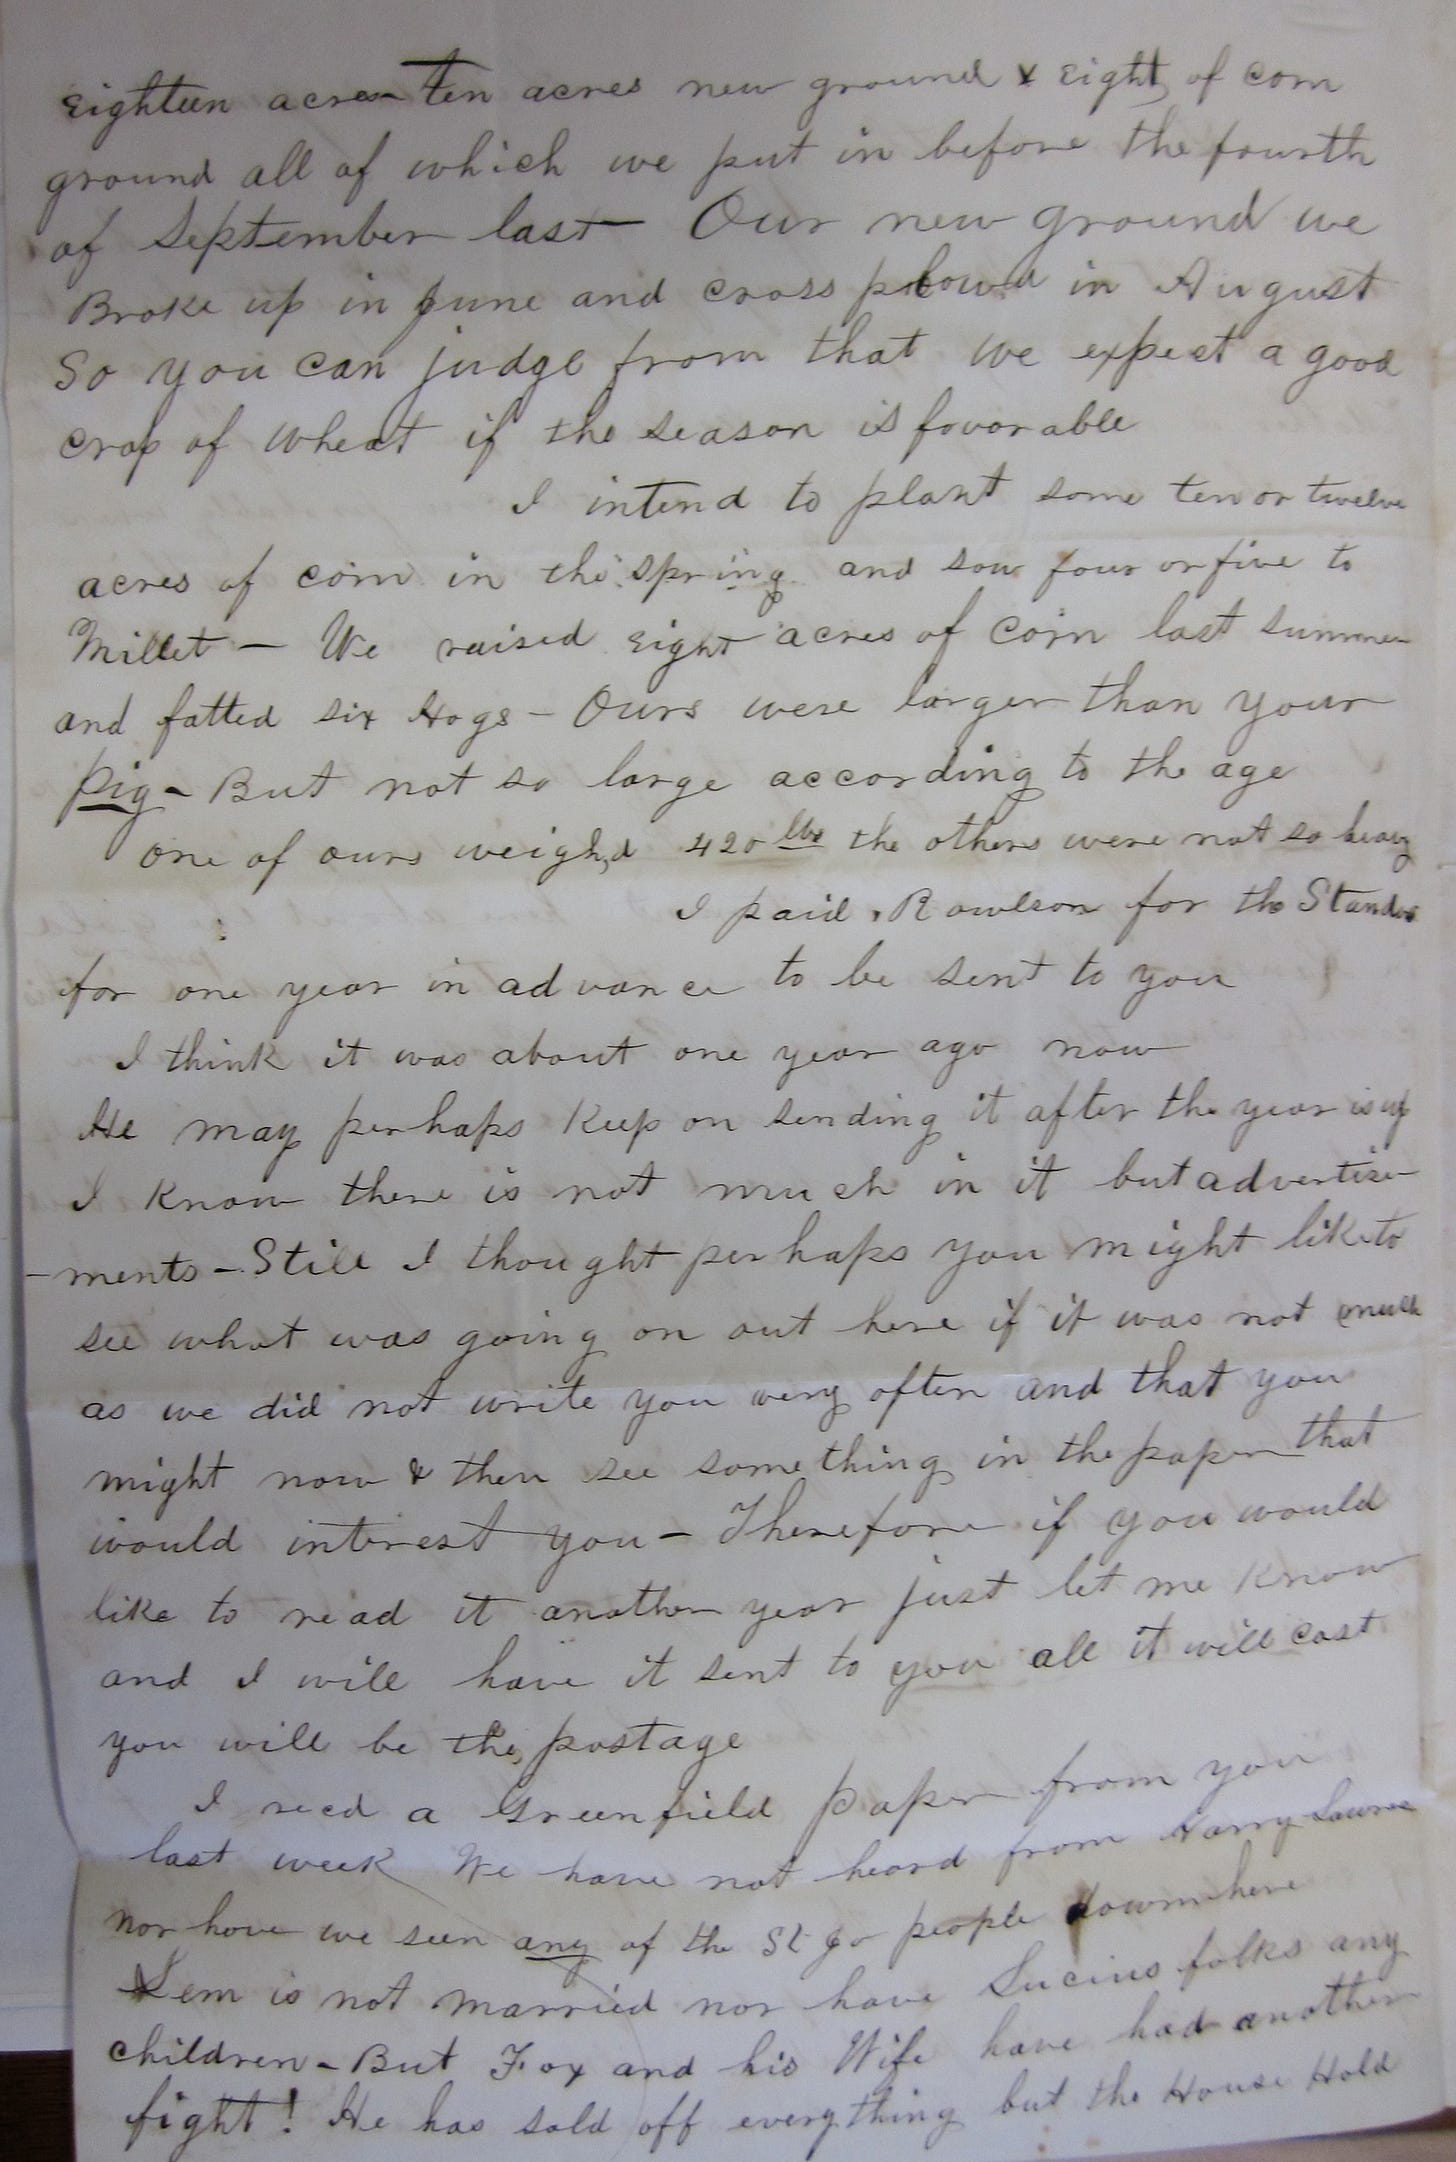 Eighteen acres Ten acres new ground & Eight of corn
ground all of which we put in before the fourth
of September last – Our new ground we
Broke up in June and cross plowd in August
So you can judge from that we expect a good
crop of Wheat if the season is favorable
I intend to plant some ten or twelve
acres of corn in the spring and sow four or five to
Millet – We raised Eight acres of Corn last summer
and fatted six Hogs – Ours were larger than your
pig – But not so large according to the age
one of ours weighd 420 lbs the others were not so heavy
I paid Rowlson for the Standard
for one year in advance to be sent to you
I think it was about one year ago now
He may perhaps Keep on sending it after the year is up
I Know there is not much in it but advertise-
-ments – Still I thought perhaps you might like to
see what was going on out here if it was not much
as we did not write you very often and that you
might now & then see something in the paper that
would interest you – Therefore if you would
like to read it another year just let me Know
and I will have it sent to you all it will cost
you will be the postage
I recd a Greenfield paper from you
last week We have not heard from Harry
nor have we seen any of the St Jo people down here
Lem is not married nor have Lucius folks any
children – But Fox and his Wife have had another
fight! He has sold off everything but the House Hold